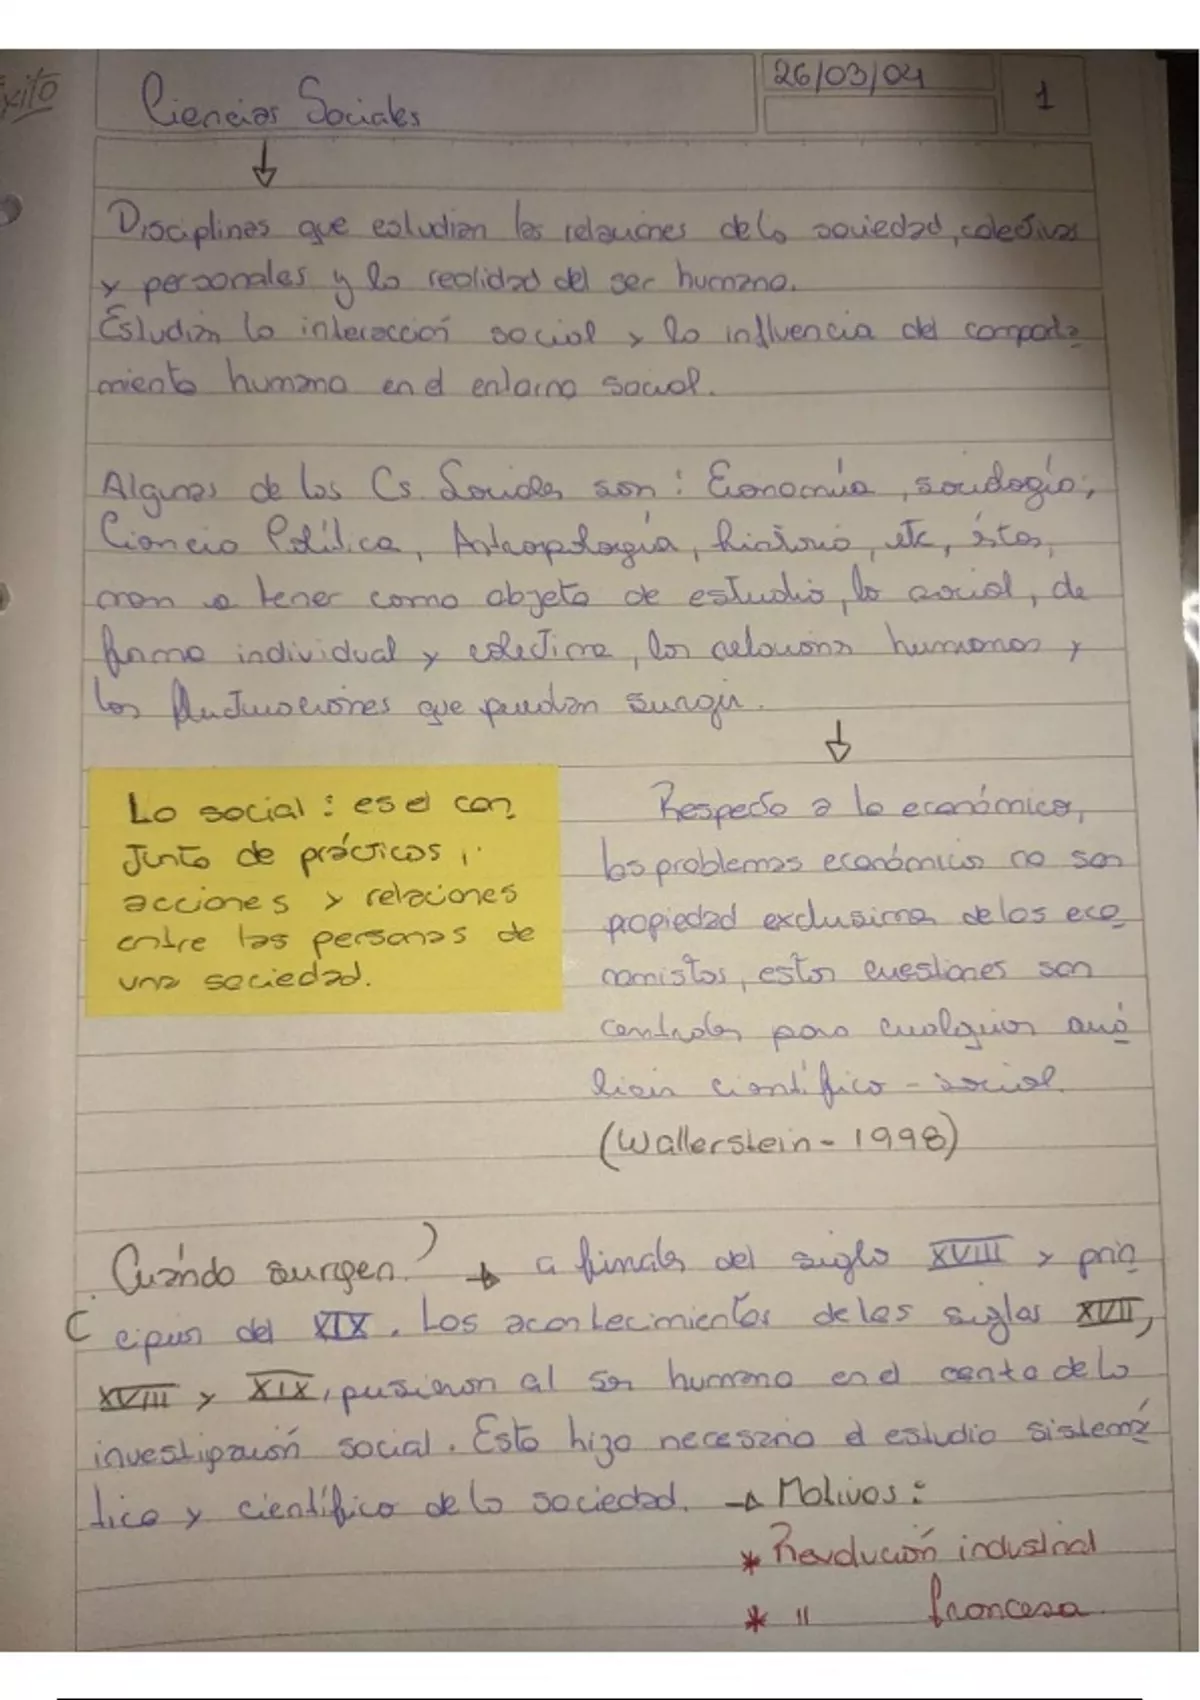 éxito
Ciencias Sociales
26/03/04
1
Disciplinas que estudian las relaciones de la sociedad, colectivas
y personales y la realidad del ser humano.
Estudian la interacción social y la influencia del comporta
miento humano en el entorno social.
Algunas de las Cs. Sociales son: Economía, sociología,
Ciencia Política, Antropología, historia, etc, éstas,
van a tener como objeto de estudio, lo social, de
forma individual y colectiva, las relaciones humanas y
las fluctuaciones que puedan surgir.
Lo social: es el con
junto de prácticas,
acciones y relaciones
entre las personas de
una sociedad.
Respecto a lo económico,
los problemas económicos no son
propiedad exclusiva de los eco
nomistas, estas cuestiones son
centrales para cualquier aná
lisis científico-social.
(Wallerstein - 1998)
Cuándo surgen? → a finales del siglo XVIII y prin
cipios del XIX. Los acontecimientos de los siglos XVII,
XVIII y XIX, pusieron al ser humano en el centro de la
investigación social. Esto hizo necesario el estudio sistemá
tico y científico de la sociedad. → Motivos:
* Revolución industrial
* " francesa